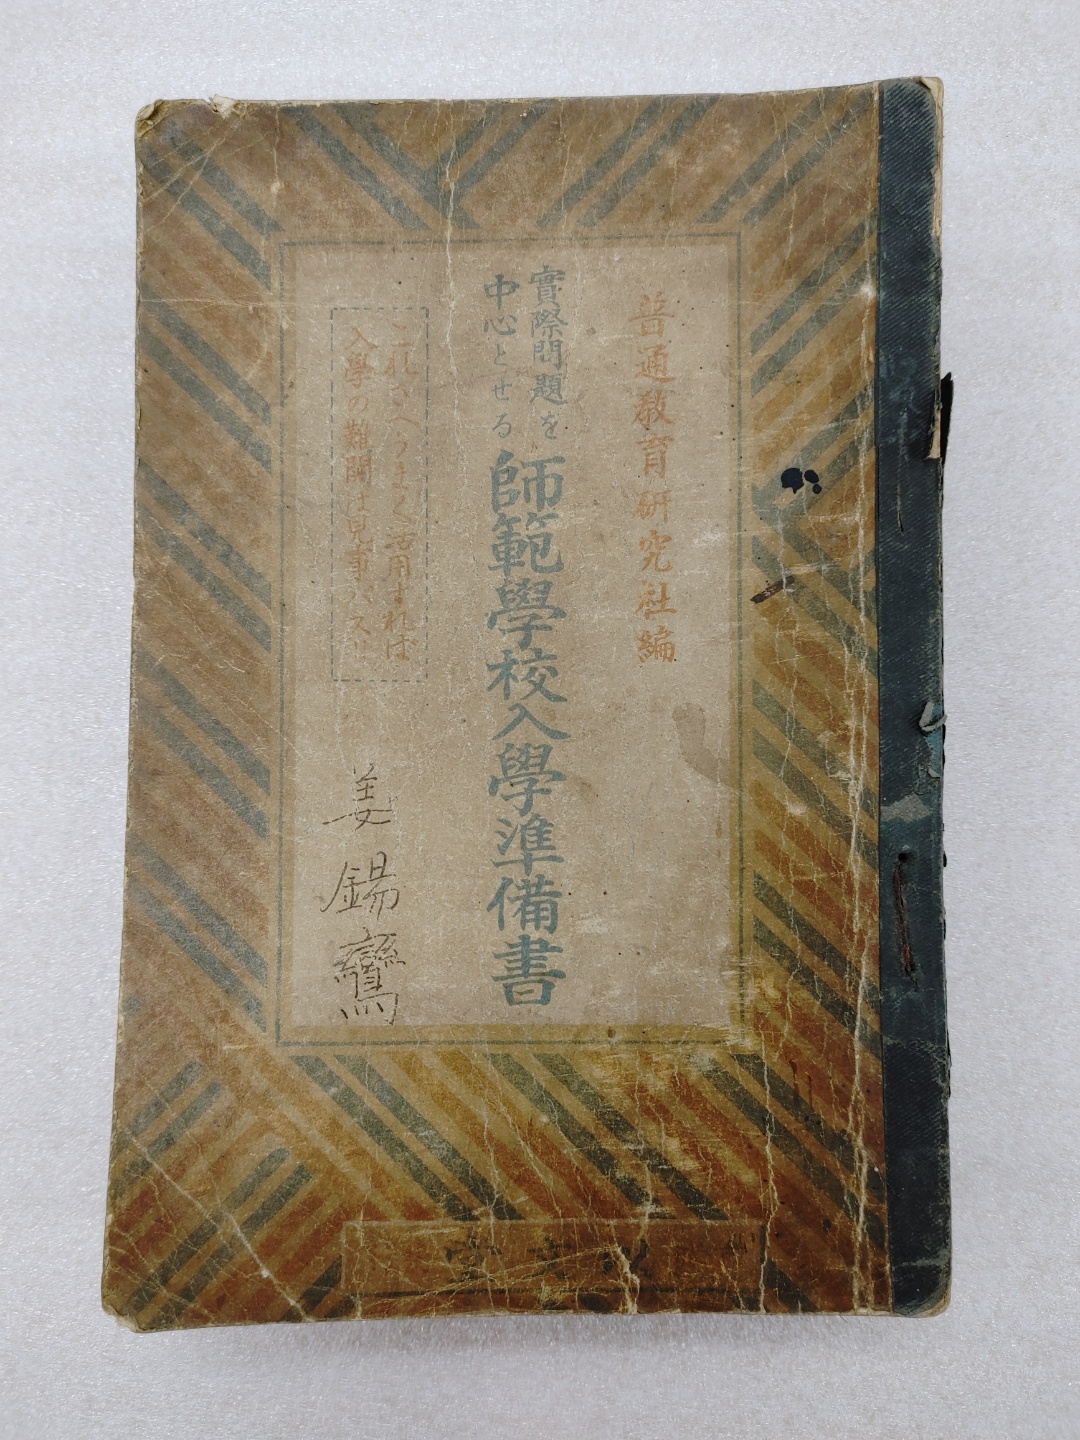 普通教育研究社編
實際問題を
中心とせる
師範學校入學準備書
これさへうまく活用すれば
入學の難關は見事パス!!
姜錫鸞